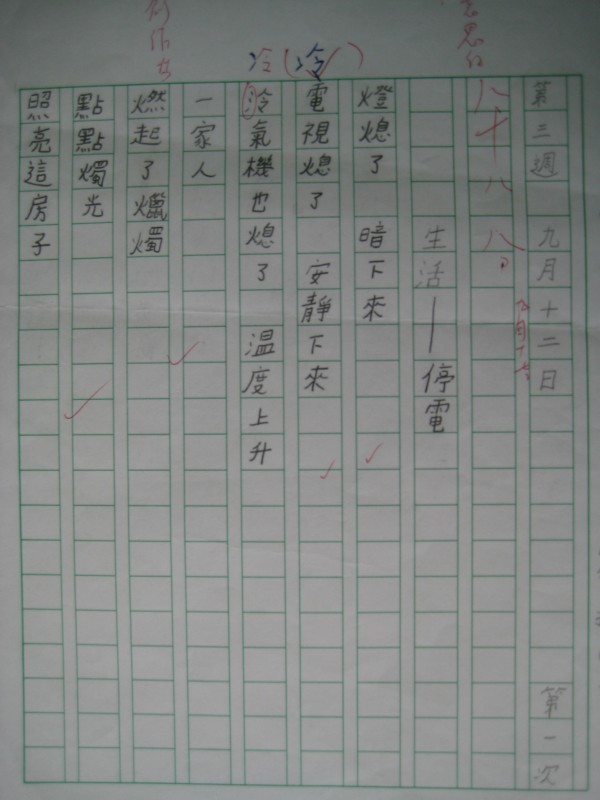 第三週 九月十二日 第一次
八十八
生活—停電
燈熄了 暗下來
電視熄了 安靜下來
泠氣機也熄了 溫度上升
一家人
燃起了蠟燭
點點燭光
照亮這房子
冷(冷)